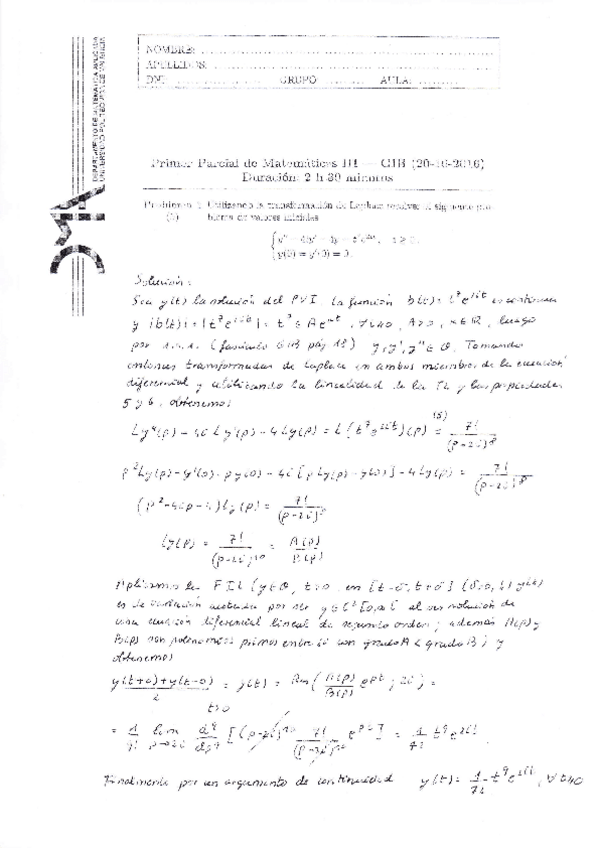 DEPARTAMENTO DE MATEMÁTICA APLICADA
UNIVERSIDAD POLITÉCNICA DE VALENCIA
NOMBRE:
APELLIDOS:
DNI: GRUPO: AULA:
Primer Parcial de Matemáticas III — (20-10-2016)
Duración: 2 h 30 minutos
Problema 1 Utilizando la transformación de Laplace resolver el siguiente pro-
blema de valores iniciales
y(0) = y'(0) = 0.
Solución:
Sea y(t) la solución del PVI. La función b(t) = t^7 e^{2it} es continua
y |b(t)| = |t^7 e^{2it}| = t^7 ≤ A e^{αt}, luego
por (fascículo pág 18) y, y', y'' ∈ Tomando
entonces transformadas de Laplace en ambos miembros de la ecuación
diferencial y utilizando la linealidad de la TL y las propiedades
5 y 6, obtenemos:
Ly''(p) - 4i Ly'(p) - 4Ly(p) = L[t^7 e^{2it}](p) = 7!/(p-2i)^8
p^2 Ly(p) - y'(0) - p y(0) - 4i[p Ly(p) - y(0)] - 4Ly(p) = 7!/(p-2i)^8
(p^2 - 4ip - 4) Ly(p) = 7!/(p-2i)^8
Ly(p) = 7!/(p-2i)^10 = A(p)/B(p)
Aplicamos la FIL en [t-δ, t+δ]
es de variación acotada por ser al ser solución de
una ecuación diferencial lineal de segundo orden; además A(p) y
B(p) son polinomios primos entre sí con grado A < grado B) y
obtenemos
(y(t+0)+y(t-0))/2 = y(t) = Res(A(p)/B(p) e^{pt}; 2i) =
t>0
= 1/9! lim p→2i d^9/dp^9 [(p-2i)^10 7!/(p-2i)^10 e^{pt}] = t^9 e^{2it}
Finalmente por un argumento de continuidad y(t) = t^9 e^{2it}, ∀ t≥0